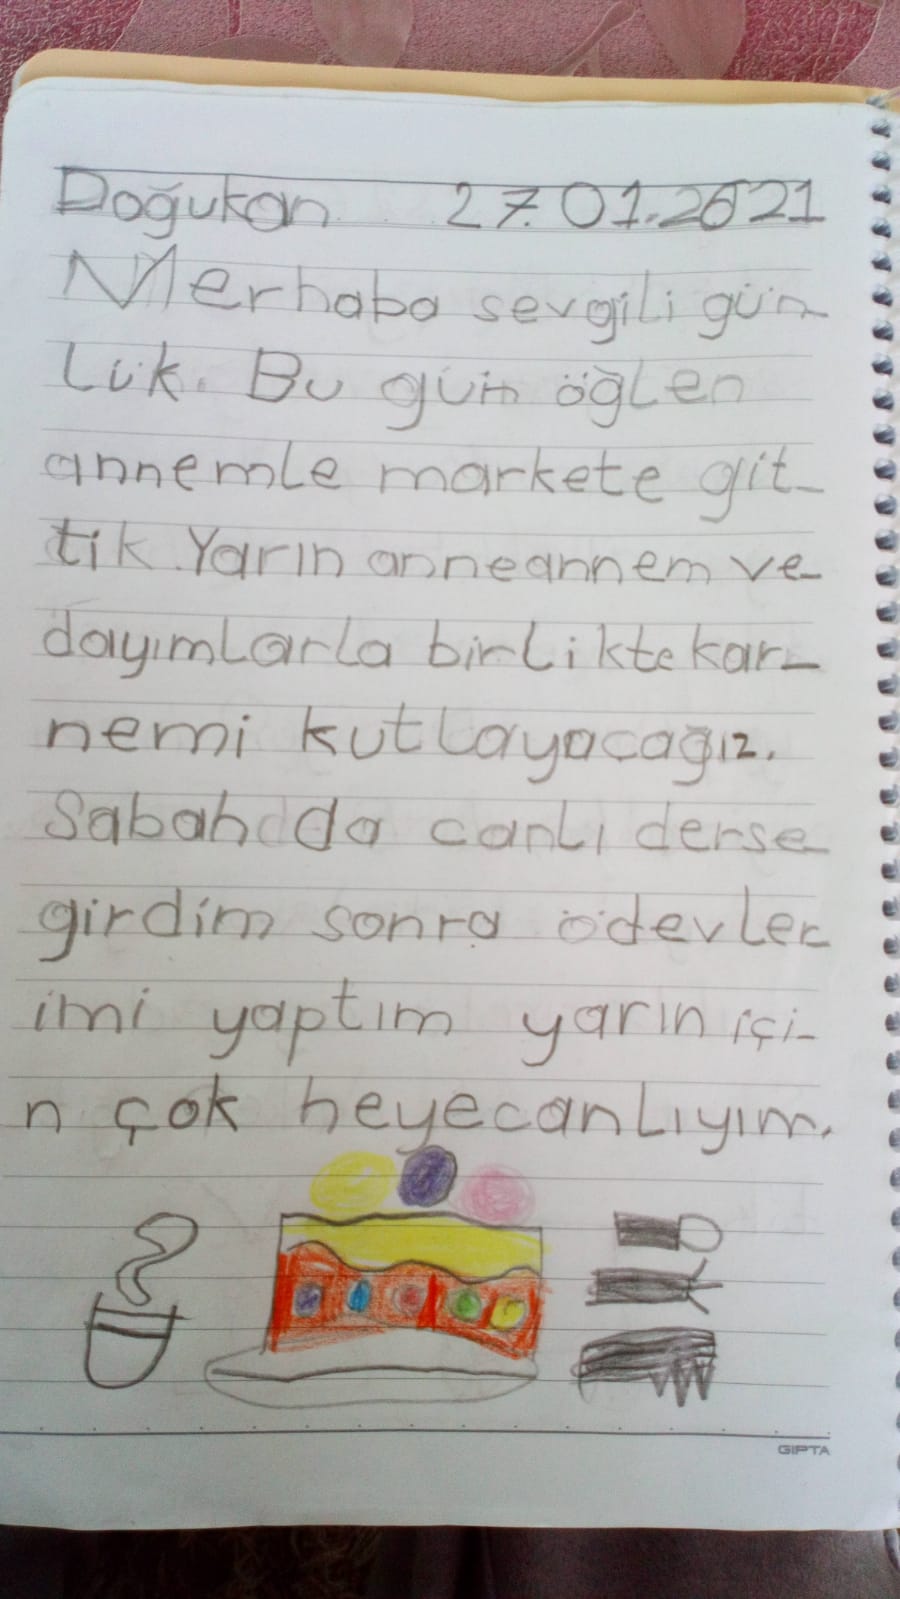 Doğukan 27.01.2021
Merhaba sevgili gün-
lük. Bu gün öğlen
annemle markete git-
tik. Yarın anneannem ve
dayımlarla birlikte kar-
nemi kutlayacağız.
Sabah da canlı derse
girdim sonra ödevler-
imi yaptım yarın içi-
n çok heyecanlıyım.
GIPTA